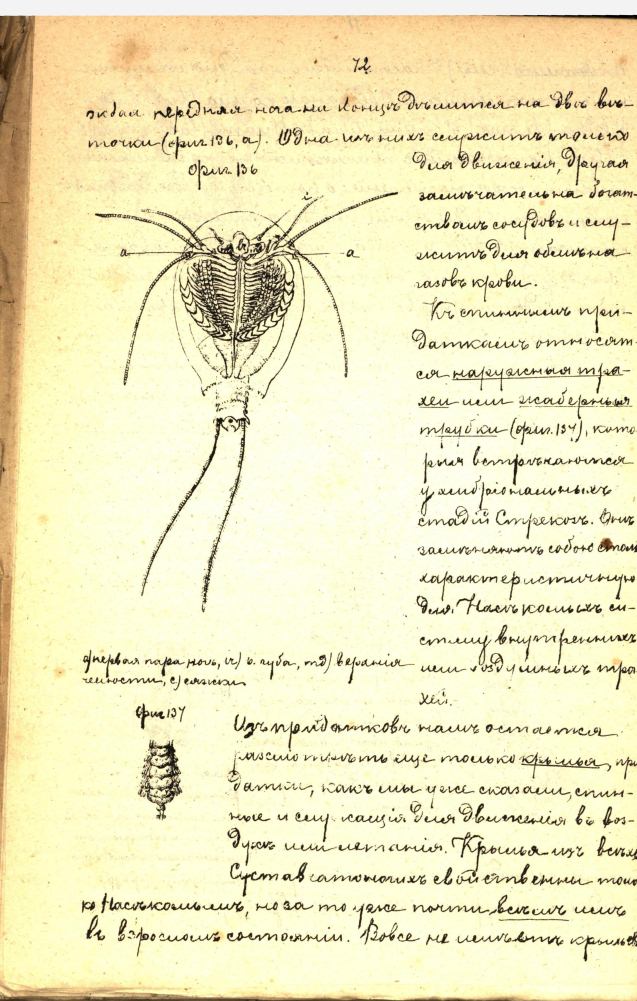 72
ждая передняя нога на концѣ дѣлится на двѣ вѣ-
точки (фиг. 136, а). Одна изъ нихъ служитъ только
фиг. 136
для движенія, другая
замѣчательна богат-
ствомъ сосудовъ и слу-
житъ для обмѣна
газовъ крови.
c
a
a
Къ спиннымъ при-
даткамъ относят-
ся наружныя тра-
хеи или жаберныя
трубки (фиг. 137), кото
рыя встрѣчаются
у эмбріональныхъ
стадій Стрекозъ. Онѣ
замѣняютъ собою столь
характеристичную
для Насѣкомыхъ си-
стему внутреннихъ
или воздушныхъ тра
хей.
первая пара ногъ, в. губа, верхнія
челюсти, с) сяжки
фиг. 137
Изъ придатковъ намъ остается
разсмотрѣть еще только крылья, при
датки, какъ мы уже сказали, спин-
ные и служащія для движенія въ воз-
духѣ или летанія. Крылья изъ всѣхъ
Суставчатоногихъ свойственны толь
ко Насѣкомымъ, но за то уже почти всѣмъ имъ
въ взросломъ состояніи. Вовсе не имѣютъ крыльевъ